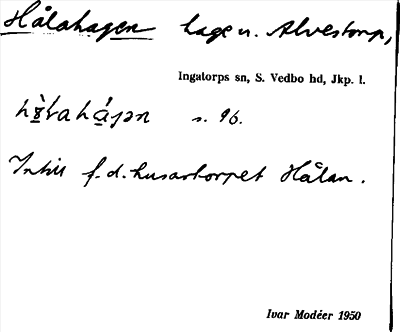 Hålahagen hage u. Alvestorp,
Ingatorps sn, S. Vedbo hd, Jkp. l.
s. 96.
Intill f.d. husartorpet Hålan.
Ivar Modéer 1950